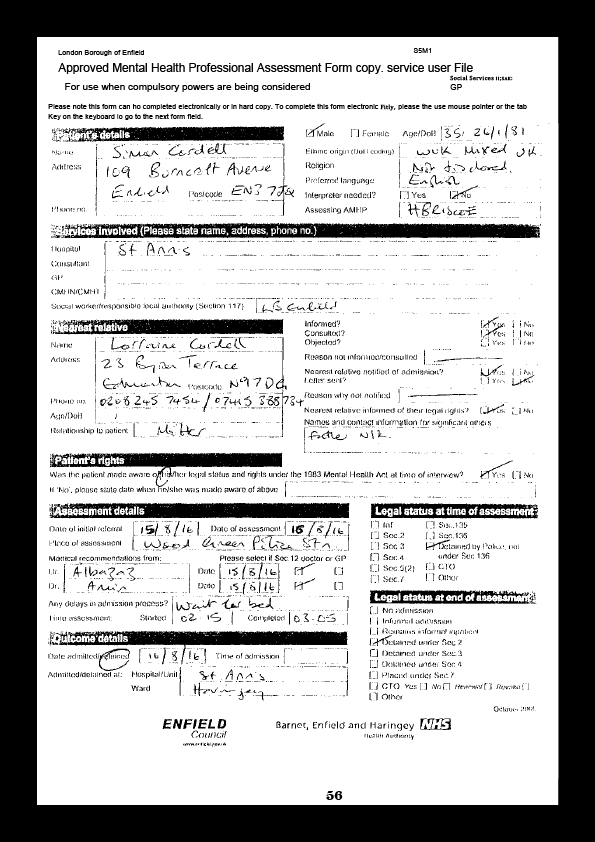 London Borough of Enfield
SSM1
Approved Mental Health Professional Assessment Form copy. service user File
Social Services
For use when compulsory powers are being considered
GP
Please note this form can ho completed electronically or in hard copy. To complete this form electronic please use the mouse pointer or the tab
Key on the keyboard lo go to the next form field.
Patient's details
Male Female Age/DoB 35, 26/1/81
Name Simon Cordell
Ethnic origin (DoH coding) Mixed UK
Address 109 Burncroft Avenue
Religion Not disclosed
Preferred language English
Enfield Postcode EN3 7JQ
Interpreter needed? Yes No
Phone no.
Assessing AMHP
Services involved (Please state name, address, phone no.)
Hospital St Ann's
Consultant
GP
CMHN/CMHT
Social worker/responsible local authority (Section 117) LB Enfield
Nearest relative
Informed? Yes No
Consulted? Yes No
Objected? Yes No
Name Lorraine Cordell
Address 23 Byron Terrace
Reason not informed/consulted
Edmonton Postcode N9 7DG
Nearest relative notified of admission? Yes No
Letter sent? Yes No
Phone no. 0208 245 7454 /
Reason why not notified
Age/DoB
Nearest relative informed of their legal rights? Yes No
Names and contact information for significant others
Relationship to patient Mother
Father N/K
Patient's rights
Was the patient made aware of his/her legal status and rights under the 1983 Mental Health Act at time of interview? Yes No
If 'No', please state date when he/she was made aware of above
Assessment details
Legal status at time of assessment
Date of initial referral 15/8/16 Date of assessment 15/8/16
Place of assessment Wood Green Police Stn
Inf Sec.135
Sec.2 Sec.136
Sec.3 Detained by Police, not under Sec 136
Sec.4
Sec.5(2) CTO
Sec.7 Other
Medical recommendations from: Please select if Sec.12 doctor or GP
Dr. Albazaz Date 15/8/16
Dr. Amin Date 15/8/16
Any delays in admission process? Wait for bed
Time assessment: Started 02.15 Completed 03.05
Legal status at end of assessment
No admission
Informal admission
Remains informal inpatient
Detained under Sec 2
Detained under Sec.3
Detained under Sec 4
Placed under Sec.7
CTO Yes No Renewal
Other
Outcome details
Date admitted/detained 16/8/16 Time of admission
Admitted/detained at: Hospital/Unit St Ann's
Ward Haringey
ENFIELD
Council
www.enfield.gov.uk
Barnet, Enfield and Haringey NHS
Health Authority
56